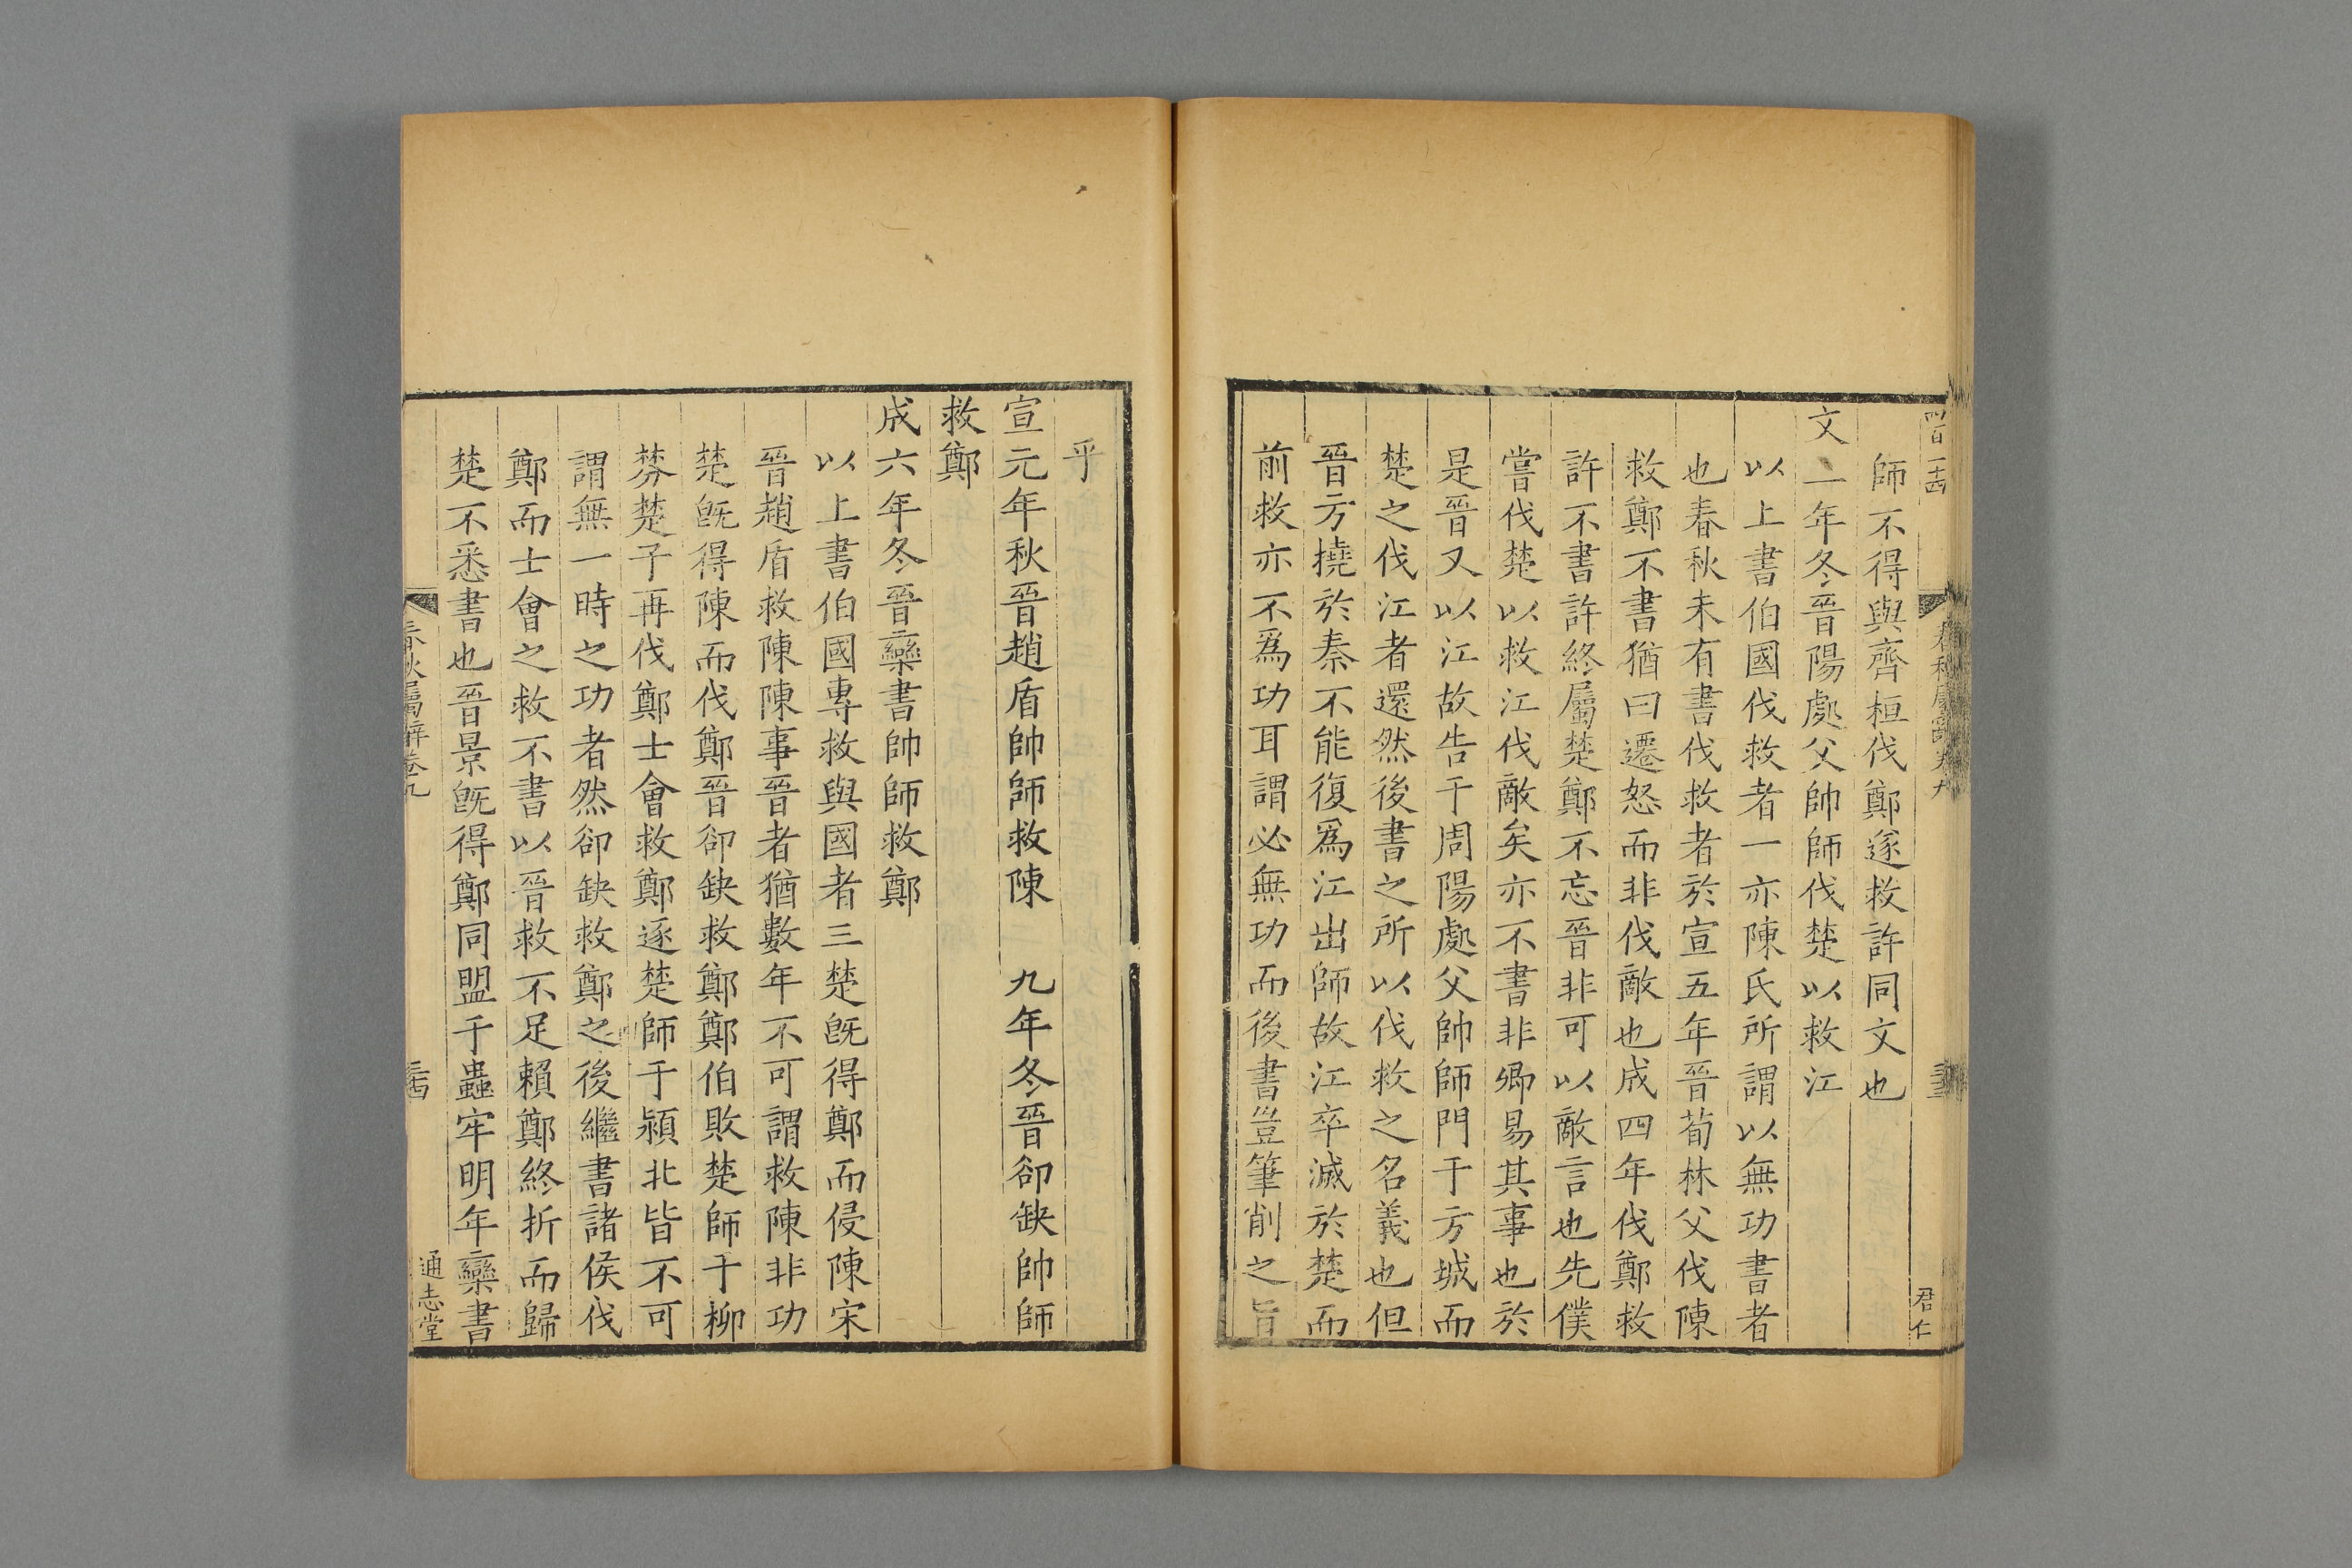 師不得與齊桓伐鄭遂救許同文也
文二年冬晉陽處父帥師伐楚以救江
以上書伯國伐救者一亦陳氏所謂以無功書者
也春秋未有書伐救者於宣五年晉荀林父伐陳
救鄭不書猶曰遷怒而非伐敵也成四年伐鄭救
許不書許終屬楚鄭不忘晉非可以敵言也先僕
嘗伐楚以救江伐敵矣亦不書非卿易其事也於
是晉又以江故告于周陽處父帥師門于方城而
楚之伐江者還然後書之所以伐救之名義也但
晉方撓於秦不能復爲江出師故江卒滅於楚而
前救亦不爲功耳謂必無功而後書豈筆削之旨
君仁
乎
宣元年秋晉趙盾帥師救陳　九年冬晉卻缺帥師
救鄭
成六年冬晉欒書帥師救鄭
以上書伯國專救與國者三楚旣得鄭而侵陳宋
晉趙盾救陳陳事晉者猶數年不可謂救陳非功
楚旣得陳而伐鄭晉卻缺救鄭鄭伯敗楚師于柳
棼楚子再伐鄭士會救鄭逐楚師于潁北皆不可
謂無一時之功者然卻缺救鄭之後繼書諸侯伐
鄭而士會之救不書以晉救不足賴鄭終折而歸
楚不悉書也晉景旣得鄭同盟于蟲牢明年欒書
春秋屬辭卷九
通志堂